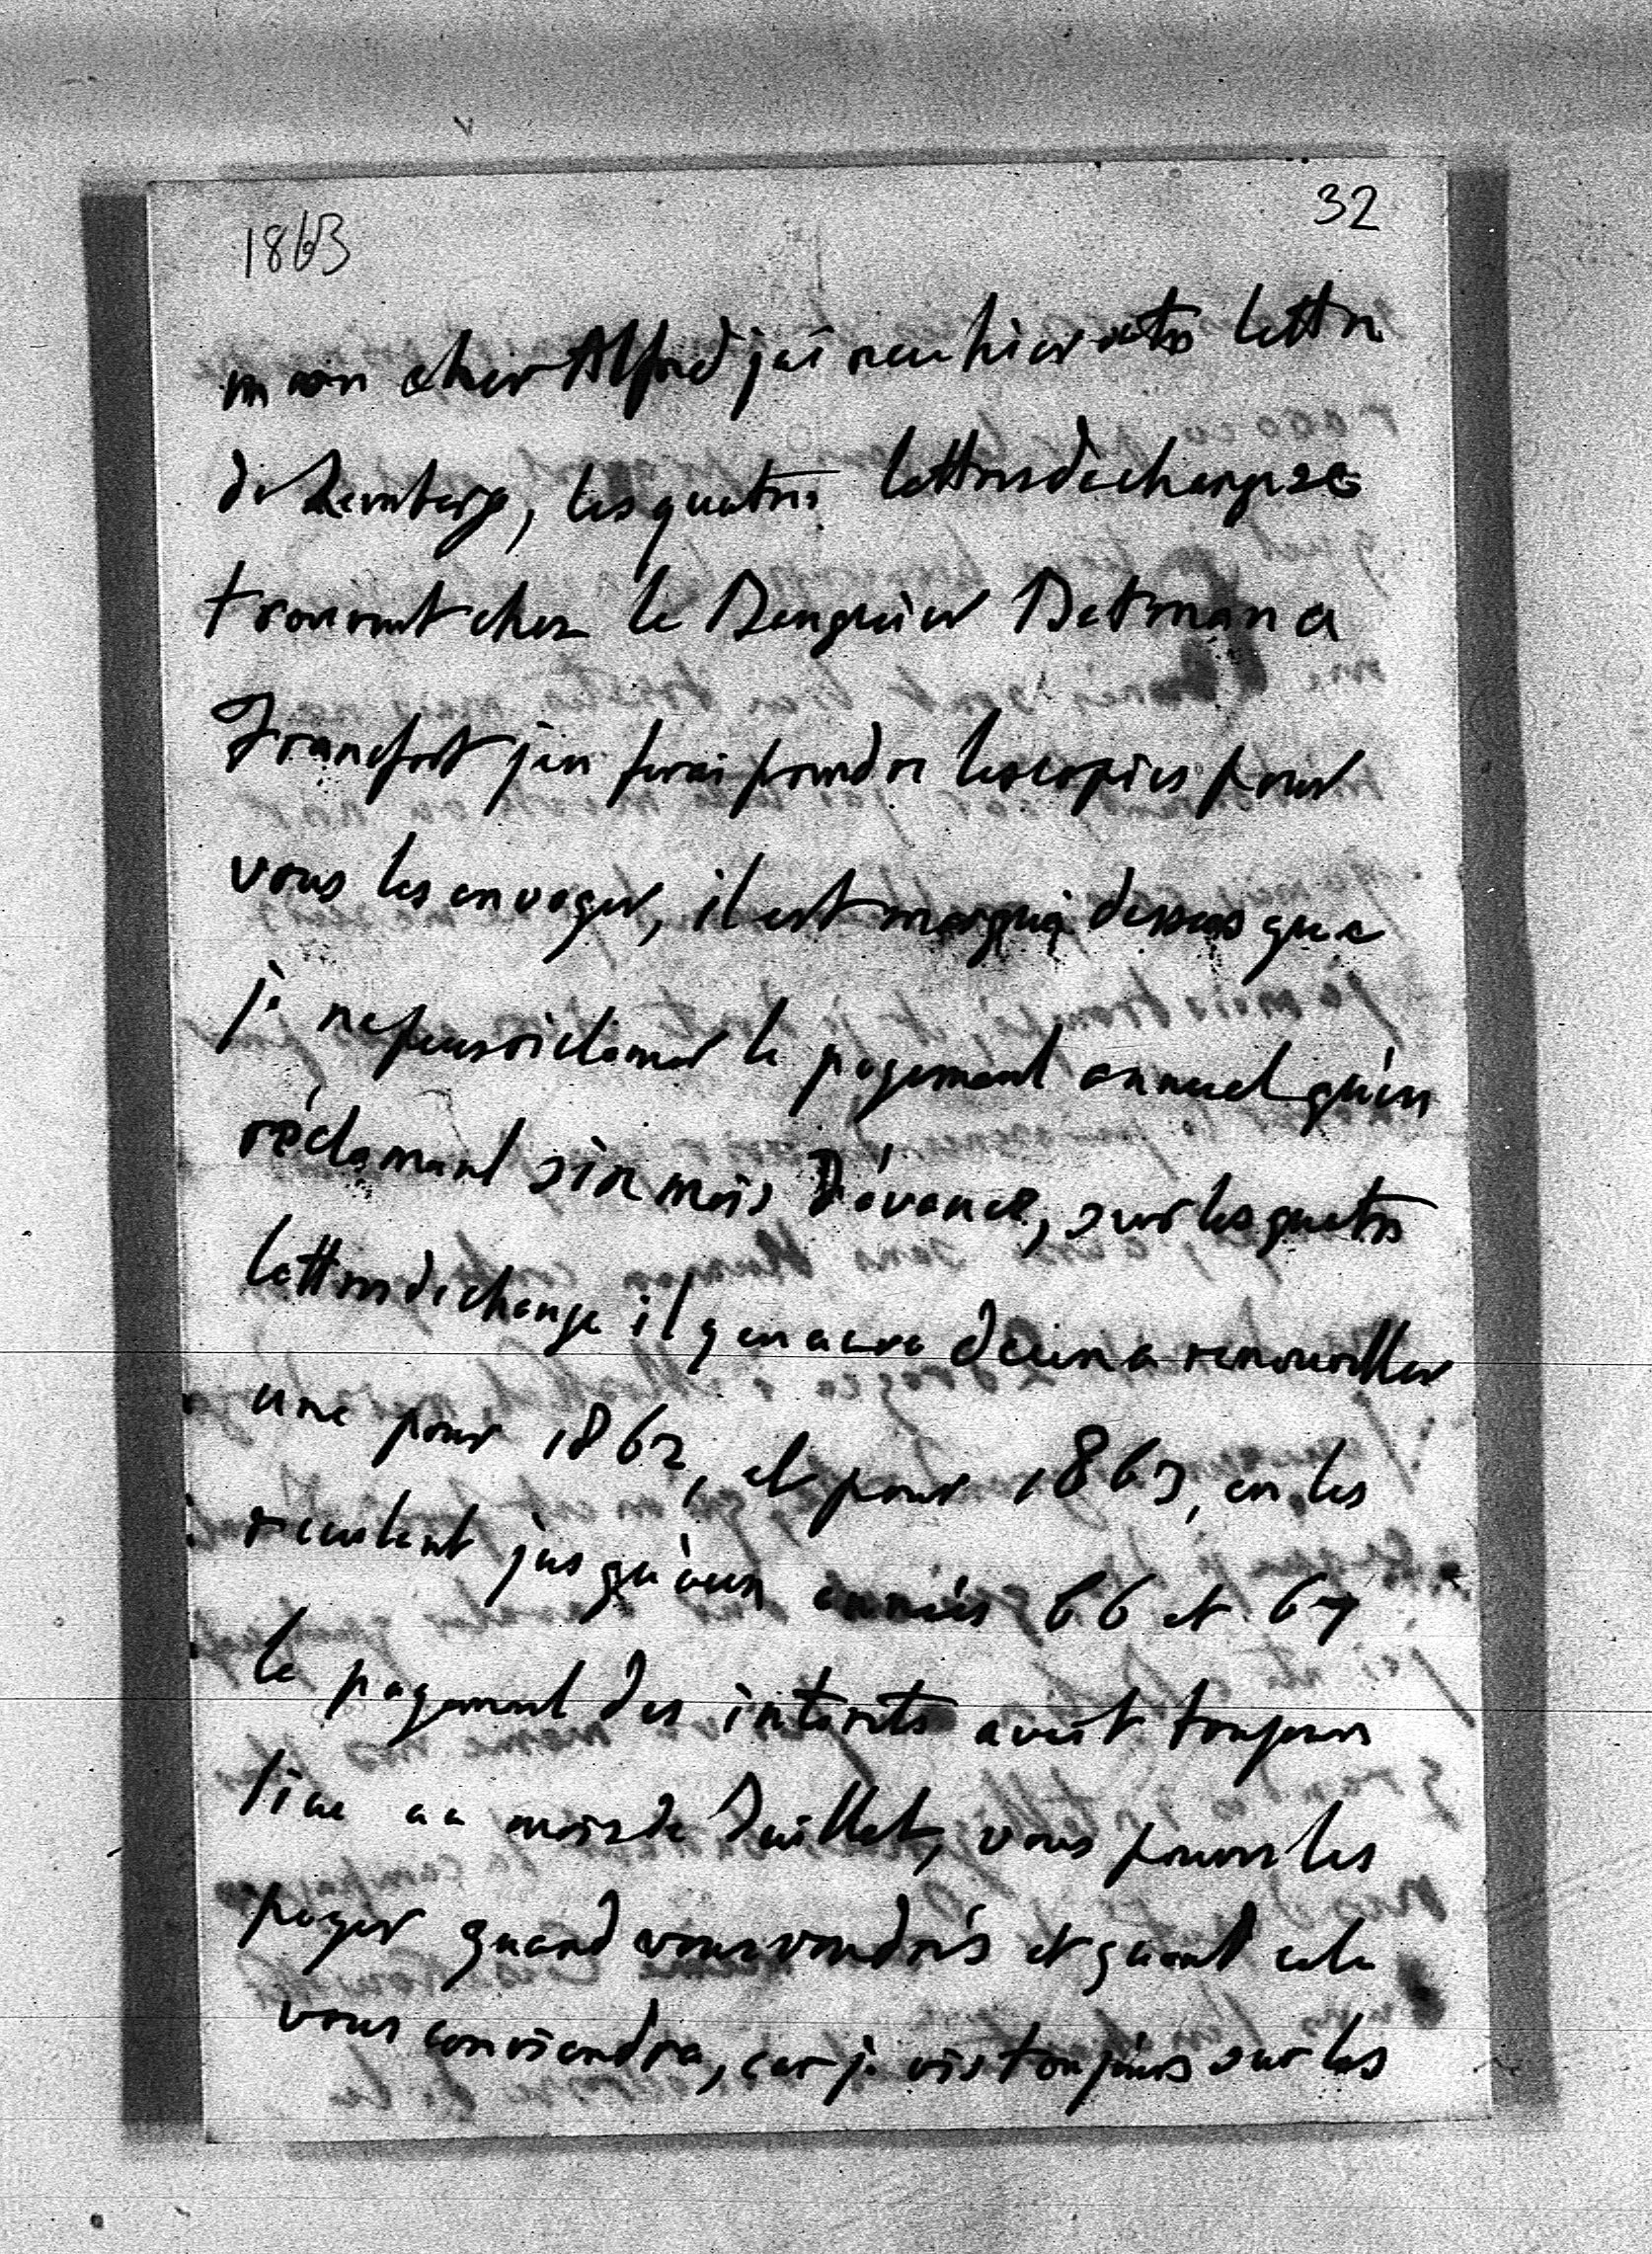 1863
32
mon cher Alfred j'ai recu hier votre lettre
de Lemberg, les quatres lettres de change se
trouvent chez le Banquier Betman a
Francfort j'en ferai prendre les copies pour
vous les envoyer, il est marqué dessus que
je ne peus réclamer le payement annuel qu'en
réclamant six mois d'avance, sur les quatres
lettres de change il y en aura deux a renouveller
une pour 1862, et pour 1863, en les
reculant jusqu'aux années 66 et 67
le payement des interets avait toujours
lieu au mois de Juillet, vous pouvez les
payer quand vous voudrés et quand cela
vous conviendra, car je vis toujours sur les